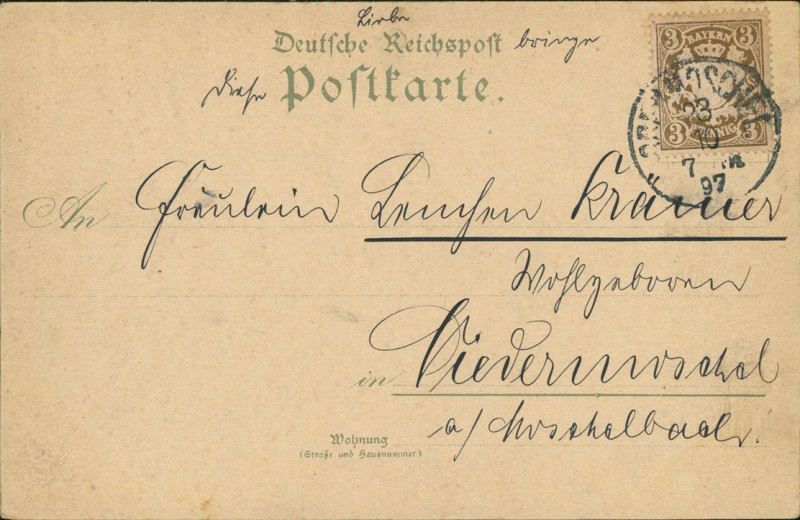 Liebe
Deutsche Reichspost bringe
diese Postkarte.
3 BAYERN 3
3 PFENNIG 3
OBERMOSCHEL
23
10
7
97
An Fräulein Lenchen Kramer
Wohlgeboren
in Niedermoschel
a/ Moschelbach.
Wohnung
(Straße und Hausnummer)